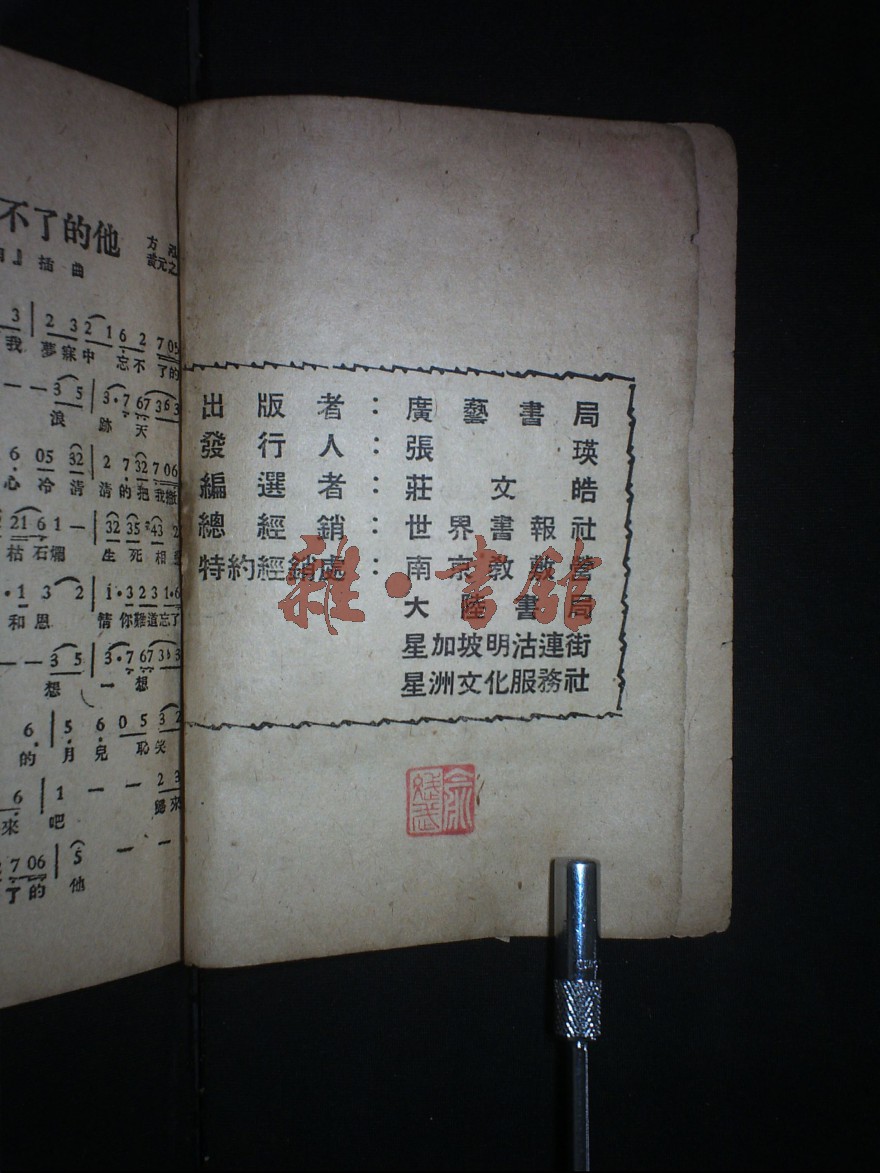 不了的他
』插曲
方
黃元之
3 | 2 3 2 1 6 2 7 05
我 夢寐中 忘不了的
— — 3 5 | 3·7 67 3 6 3
浪 跡天
6 05 32 | 2 7 32 7 06
心冷清 清的把我撇
21 6 1 — | 32 35 43 2
枯石爛 生死相
1 3 2 | i·3 23 1·6
和恩 情你難道忘了
— — 3 5 | 3·7 67 3 3
想 一想
6 | 5 6 0 5 3 2
的月兒恥笑
6 | 1 — — 2 3
來吧 歸來
7 06 | 5 — —
了的他
出版者：廣藝書局
發行人：張瑛
編選者：莊文皓
總經銷：世界書報社
特約經銷處：南京教敷營
大陸書局
星加坡明沽連街
星洲文化服務社
雜·書館